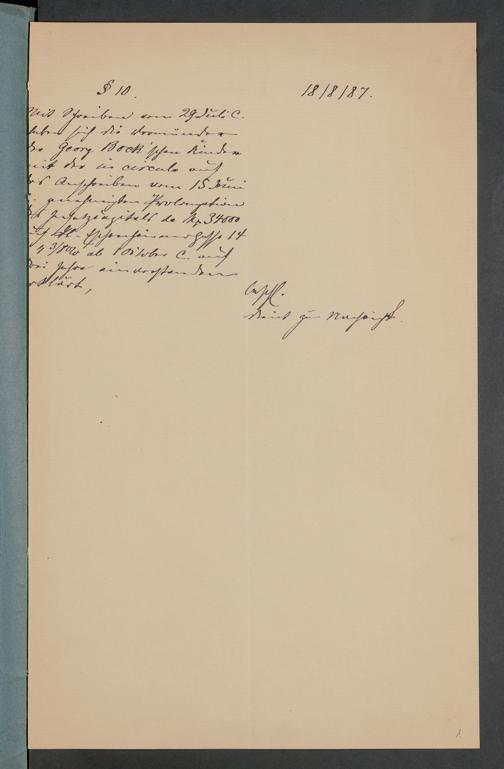 § 10. 18/8/87.
Mit Schreiben vom 29 Juli c.
haben sich die Vormünder
der Georg Bock'schen Kinder
mit der in circulo auf
das Anschreiben vom 15 Juni
c. genehmigten Prolongation
des Insatzcapitals de M 34000
auf Kl. Eschenheimer Gasse 14
a 3 3/4 % ab 1 October c. auf
drei Jahre einverstanden
erklärt,
Beschl.
dient zur Nachricht.
1